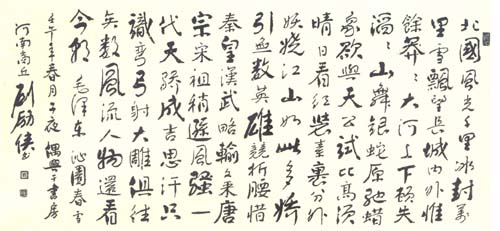 北國風光千里冰封萬
里雪飄望長城内外惟
餘莽〻大河上下頓失
滔〻山舞銀蛇原馳蠟
象欲與天公試比高須
晴日看紅裝素裹分外
妖嬈江山如此多嬌
引無數英雄競折腰惜
秦皇漢武略輸文采唐
宗宋祖稍遜風騷一
代天驕成吉思汗只
識彎弓射大雕俱往
矣數風流人物還看
今朝 毛澤東 沁園春雪
壬午年春月子夜 偶興于書房
河南商丘